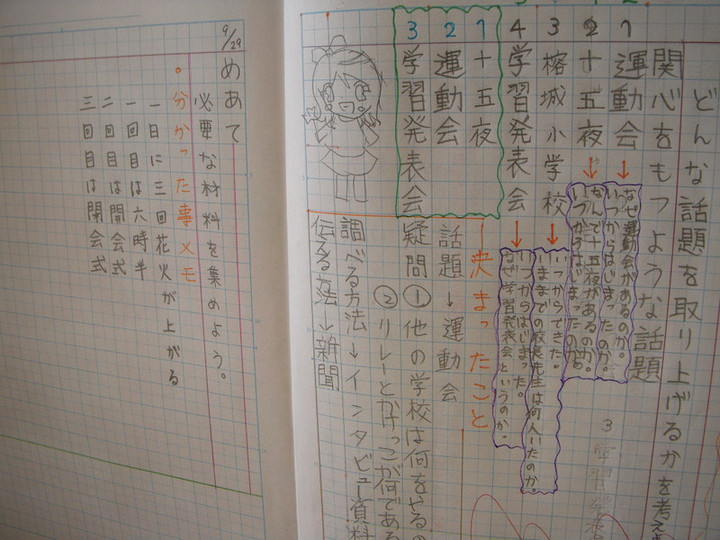 どんな話題を取り上げるかを考え
関心をもつような話題
1 運動会→
なぜ運動会があるのか。
いつからはじまったのか。
2 十五夜→
なんで十五夜があるのか。
いつからはじまったのか。
3 榕城小学校→
いつからできた。
いままでの校長先生は何人いたのか。
4 学習発表会→
いつからはじまった。
なぜ学習発表会というのか。
1 十五夜
2 運動会
3 学習発表会
決まったこと
話題→運動会
疑問①他の学校は何をやるの
②リレーとかけっこが何である
調べる方法→インタビュー資料
伝える方法→新聞
9/29
めあて
必要な材料を集めよう。
。分かった事メモ
一日に三回花火が上がる
一回目は六時半
二回目は開会式
三回目は閉会式